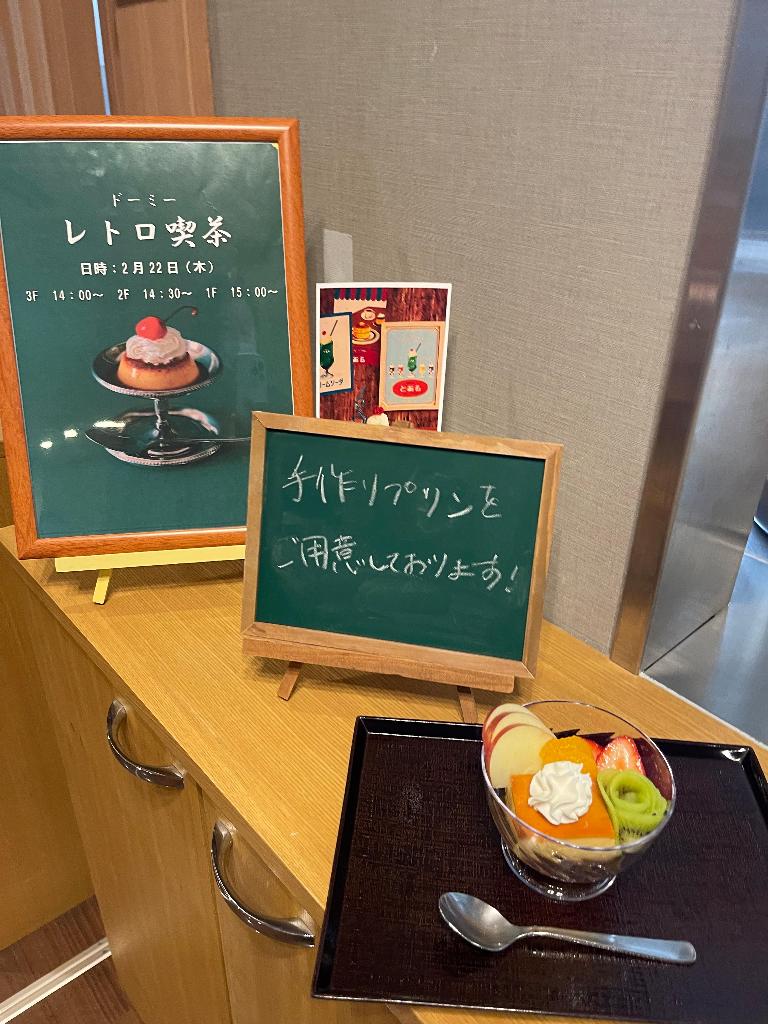 ドーミー
レトロ喫茶
日時：2月22日（木）
3F 14:00〜 2F 14:30〜 1F 15:00〜
手作りプリンを
ご用意しております！